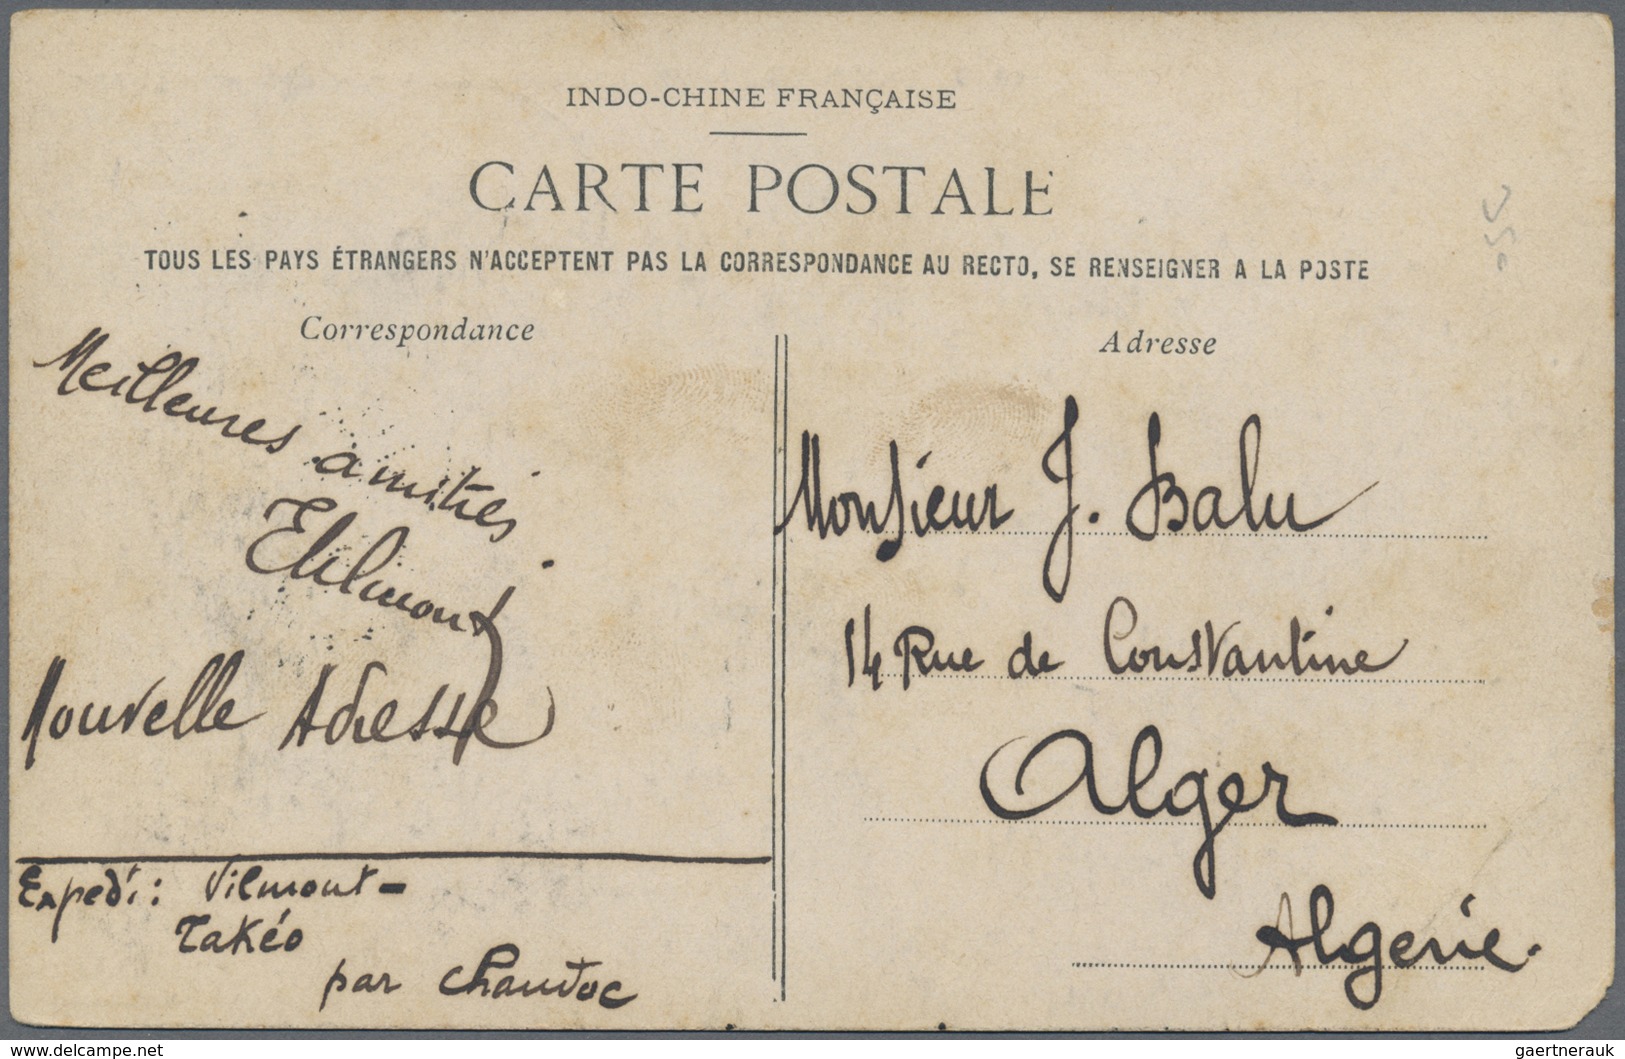 INDO-CHINE FRANÇAISE
CARTE POSTALE
TOUS LES PAYS ÉTRANGERS N'ACCEPTENT PAS LA CORRESPONDANCE AU RECTO, SE RENSEIGNER A LA POSTE
Correspondance
Meilleures amitiés
Nouvelle Adresse
Expedi: Vilmont-
Takéo
par Chaudoc
Adresse
Monsieur J. Balu
14 Rue de Constantine
Alger
Algerie.
delcampe.net
gaertnerauk